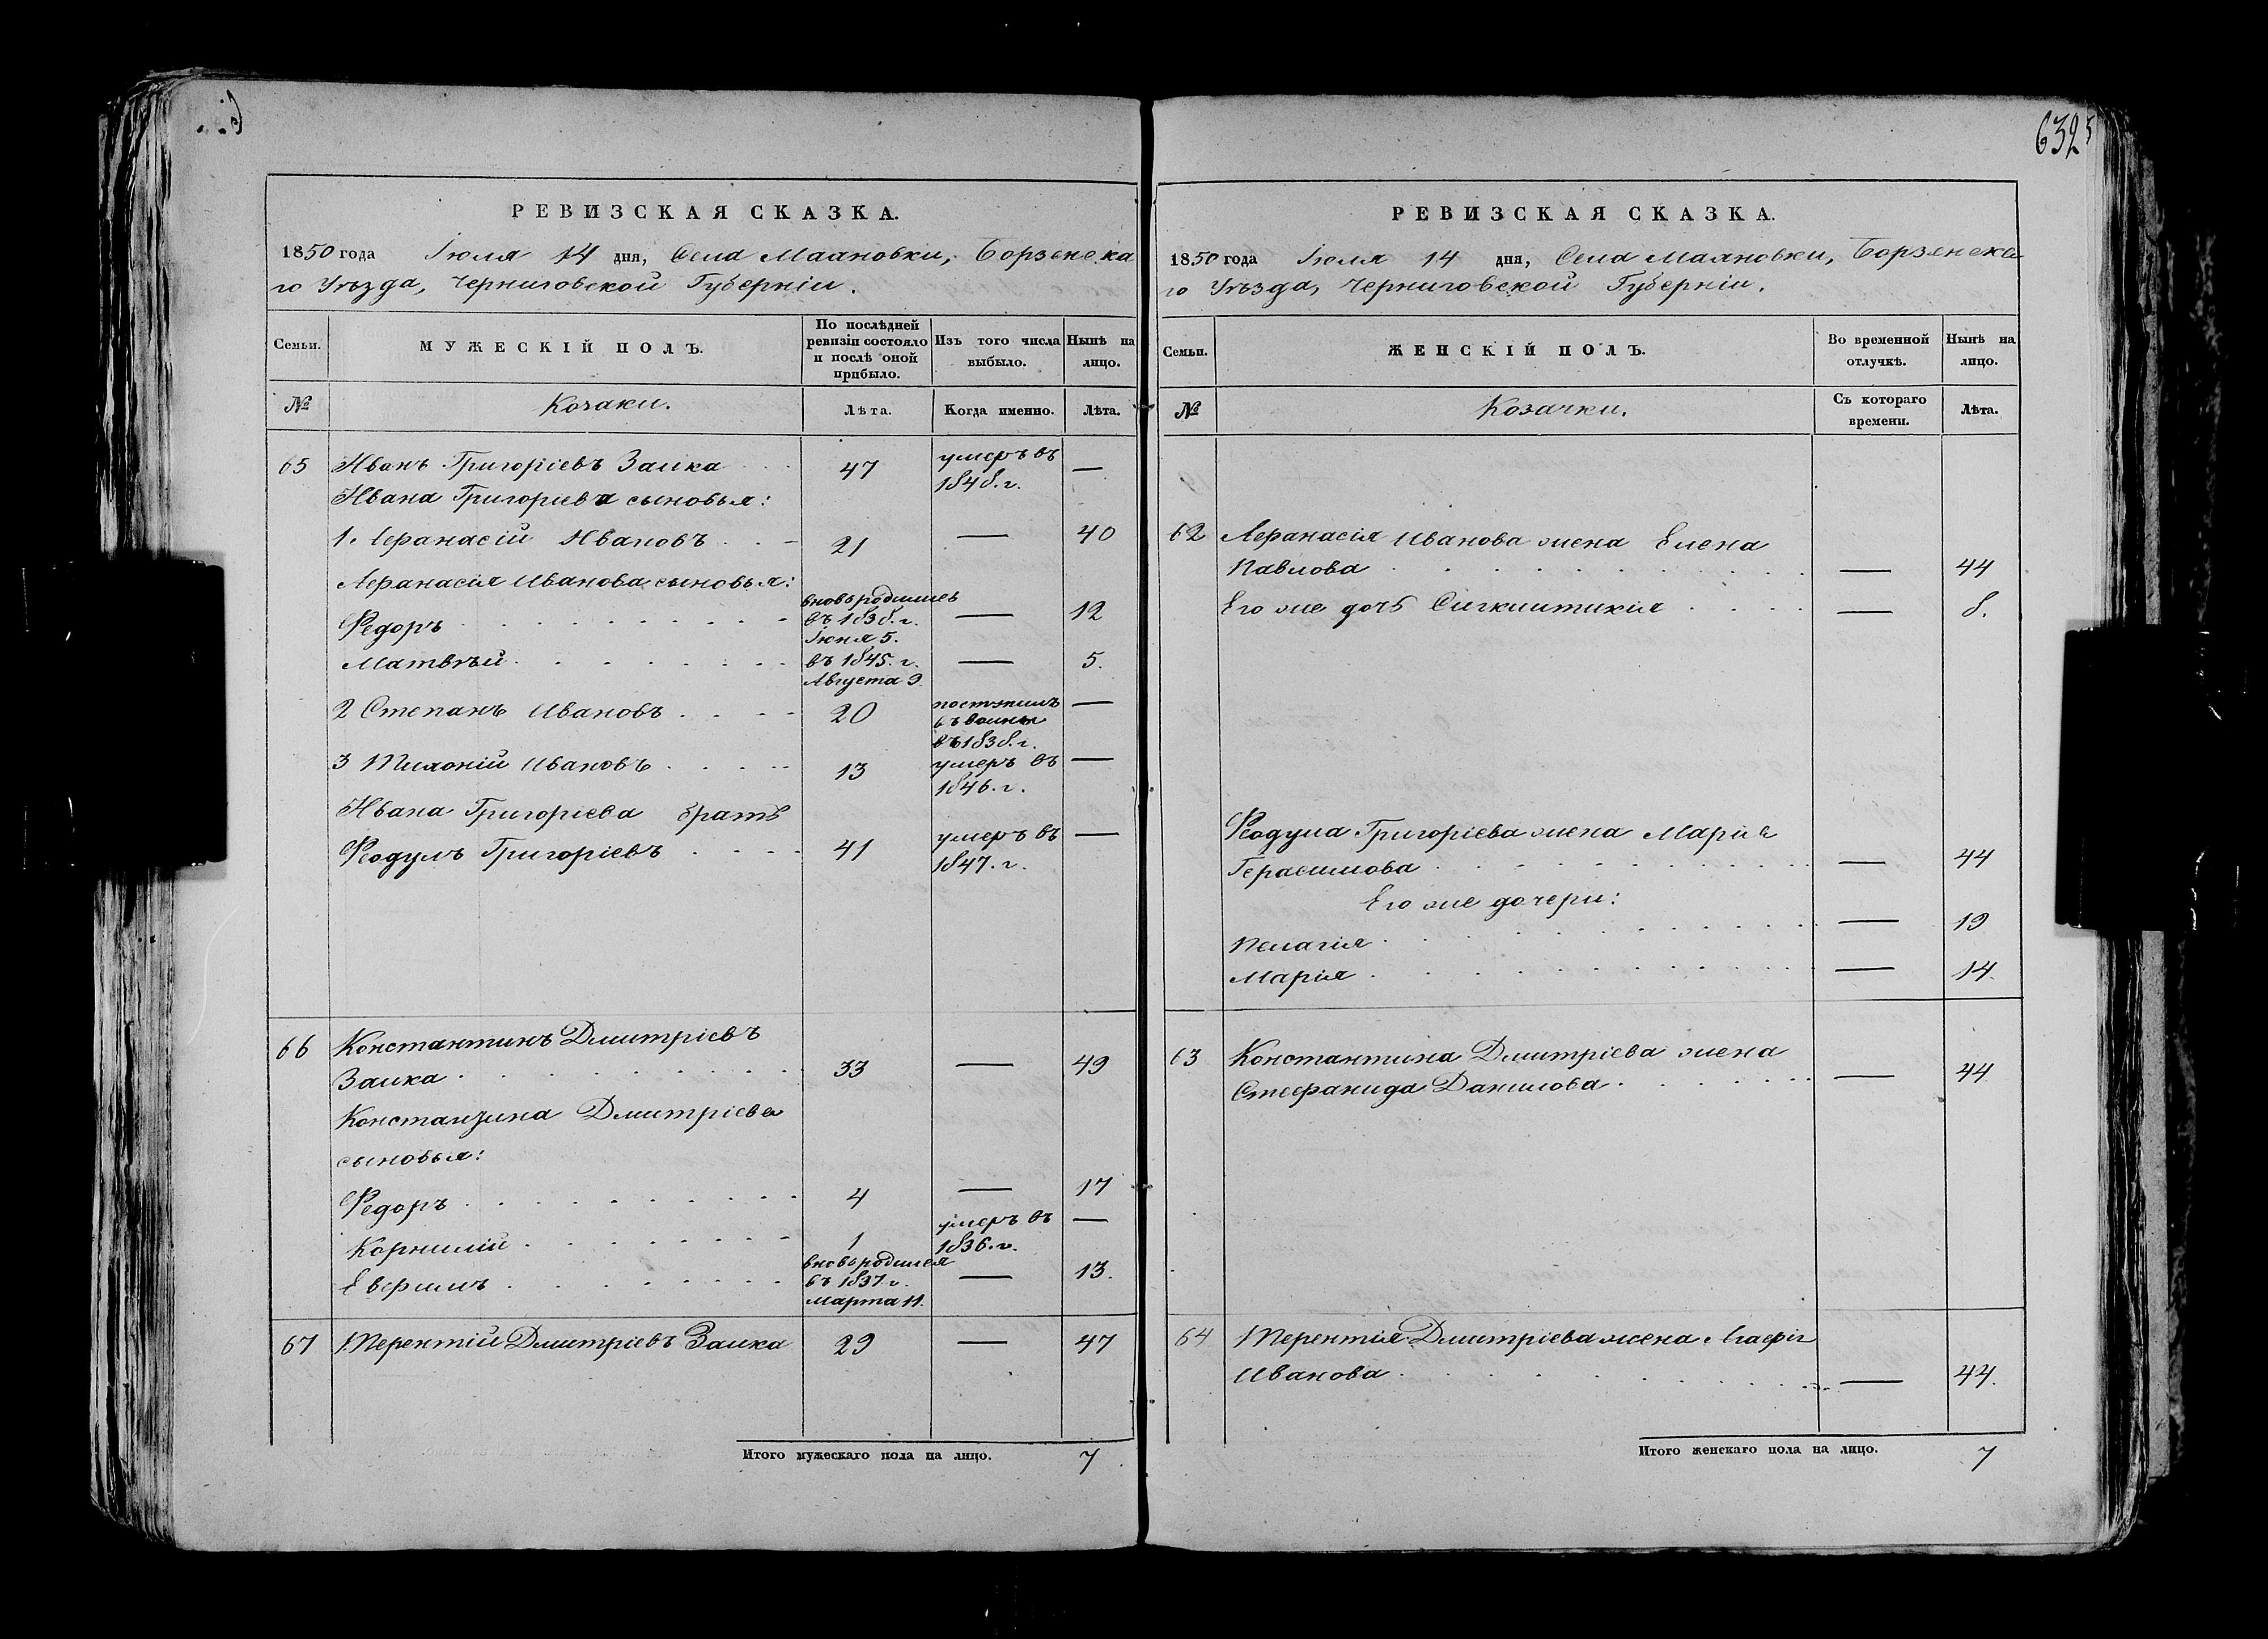 РЕВИЗСКАЯ СКАЗКА.
1850 года Іюля 14 дня, Села Малановки, Борзенска
го Уѣзда, Черниговской Губерніи.
Семьи.
МУЖЕСКІЙ ПОЛЪ.
По послѣдней
ревизіи состояло
и послѣ оной
прибыло.
Изъ того числа
выбыло.
Нынѣ на
лицо.
№
Козаки.
Лѣта.
Когда именно.
Лѣта.
65 Иванъ Григоріевъ Заика 47 умеръ въ —
1848. г.
Ивана Григоріева сыновья:
1. Афанасій Ивановъ 21 — 40
Афанасія Иванова сыновья:
Федоръ вновьродившись — 12
въ 1838. г.
Іюня 5.
Матвѣй въ 1845. г. — 5.
Августа 9.
2 Степанъ Ивановъ 20 поступилъ —
въ
въ 1838. г.
3 Тихоній Ивановъ 13 умеръ въ —
1846. г.
Ивана Григоріева братъ
Феодулъ Григоріевъ 41 умеръ въ —
1847. г.
66 Константинъ Дмитріевъ
Заика 33 — 49
Константина Дмитріева
сыновья:
Федоръ 4 — 17
Корнилій 1 умеръ въ —
1836. г.
Евфимъ вновьродился — 13.
въ 1837. г.
Марта 11.
67 Терентій Дмитріевъ Заика 29 — 47
Итого мужескаго пола на лицо. 7
632
РЕВИЗСКАЯ СКАЗКА.
1850 года Іюля 14 дня, Села Малановки, Борзенска
го Уѣзда, Черниговской Губерніи.
Семьи.
ЖЕНСКІЙ ПОЛЪ.
Во временной
отлучкѣ.
Нынѣ на
лицо.
№
Козачки.
Съ котораго
времени.
Лѣта.
62 Афанасія Иванова жена Елена
Павлова — 44
Его же дочь — 8.
Феодула Григоріева жена Марія
Герасимова — 44
Его же дочери:
Пелагія — 19
Марія — 14.
63 Константина Дмитріева жена
Стефанида Данилова — 44
64 Терентія Дмитріева жена Агафія
Иванова — 44.
Итого женскаго пола на лицо. 7